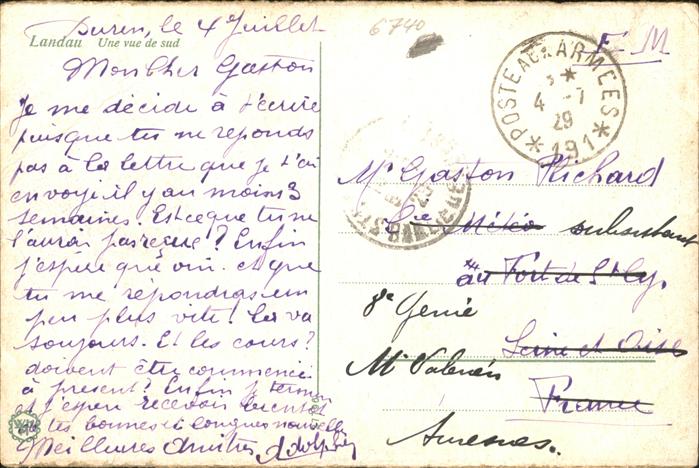 Duren, le 4 Juillet
Landau Une vue de sud
Mon cher Gaston
Je me décide à t'écrire
puisque tu ne réponds
pas à la lettre que je t'ai
envoyé il y au moins 3
semaines. Est ce que tu ne
l'aurai pas reçue? Enfin
j'espère que oui. et que
tu me répondras un
peu plus vite! Ça va
toujours. Et les cours?
doivent être commencé
à présent? Enfin je termine
et j'espère recevoir bientôt
de tes bonnes et longues nouvelles
Meilleures Amitiés Adolphe
6740
F. M
POSTE AUX ARMEES
4 -7
29
*191*
Mr Gaston Richard
Cie Météo subsistant
au Fort de St Cyr.
8e Génie
Seine et Oise
Mt Valérien
France
Suresnes.